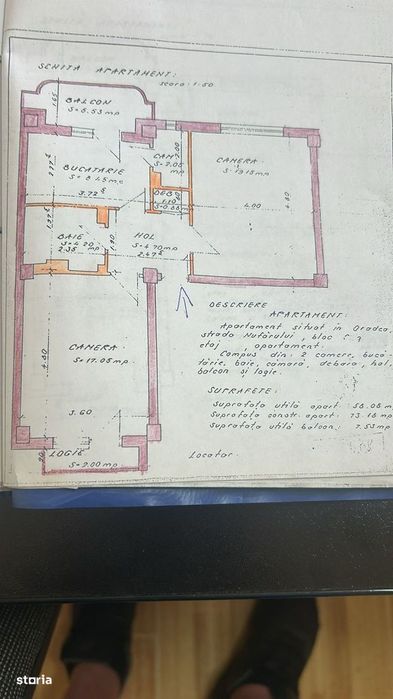 SCHITA APARTAMENT:
scara 1:50
BALCON
S=5.53mp
1.65
BUCATARIE
S=8.45mp
3.72
CAM
S=2.05
mp
CAMERA
S=19.15mp
4.00
4.80
DEB
1.10
S=0.88mp
BAIE
S=4.20
2.35 mp
1.90
HOL
S=4.70mp
2.47
CAMERA
S=17.05mp
4.80
3.60
LOGIE
S=2.00mp
DESCRIERE
APARTAMENT:
Apartament situat in Oradea,
strada Nufărului, bloc C
etaj , apartament.
Compus din: 2 camere, bucă
tărie, baie, cămară, debara, hol,
balcon și logie.
SUPRAFETE:
Suprafața utilă apart: 56.08 m
Suprafața constr. apart: 73.18 mp
Suprafața utilă balcon: 7.53mp
Locatar:
storia